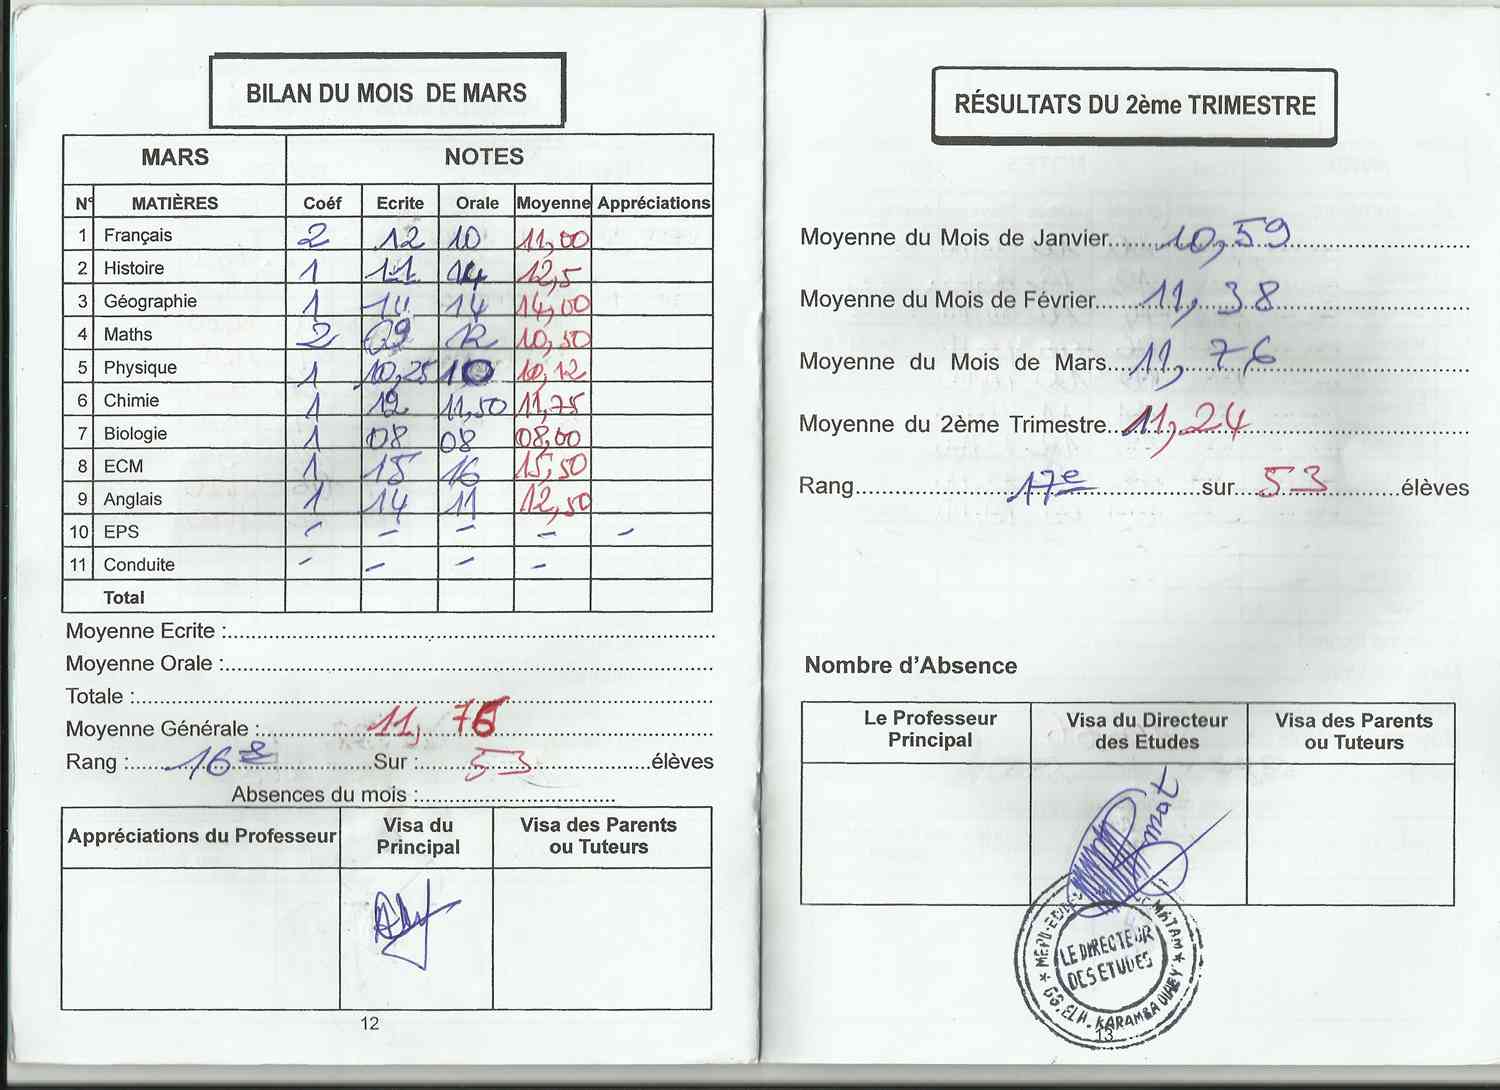 BILAN DU MOIS DE MARS
MARS NOTES
N° MATIÈRES Coéf Ecrite Orale Moyenne Appréciations
1 Français 2 12 10 11,00
2 Histoire 1 11 14 12,5
3 Géographie 1 14 14 14,00
4 Maths 2 09 12 10,50
5 Physique 1 10,25 10 10,12
6 Chimie 1 12 11,50 11,75
7 Biologie 1 08 08 08,00
8 ECM 1 15 16 15,50
9 Anglais 1 14 11 12,50
10 EPS - - - - -
11 Conduite - - - -
Total
Moyenne Ecrite :
Moyenne Orale :
Totale :
Moyenne Générale : 11,76
Rang : 16e Sur : 53 élèves
Absences du mois :
Appréciations du Professeur
Visa du Principal
Visa des Parents ou Tuteurs
12
RÉSULTATS DU 2ème TRIMESTRE
Moyenne du Mois de Janvier 10,59
Moyenne du Mois de Février 11,38
Moyenne du Mois de Mars 11,76
Moyenne du 2ème Trimestre 11,24
Rang 17e sur 53 élèves
Nombre d'Absence
Le Professeur Principal
Visa du Directeur des Etudes
Visa des Parents ou Tuteurs
MATAM
LE DIRECTEUR
DES ETUDES
ELH. KARAMBA
13